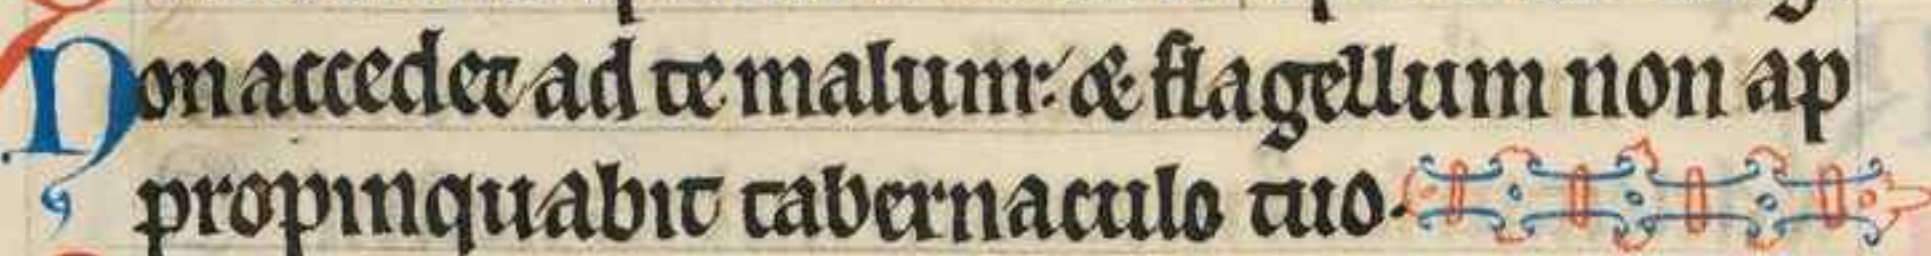 Non accedet ad te malum: & flagellum non ap
propinquabit tabernaculo tuo.